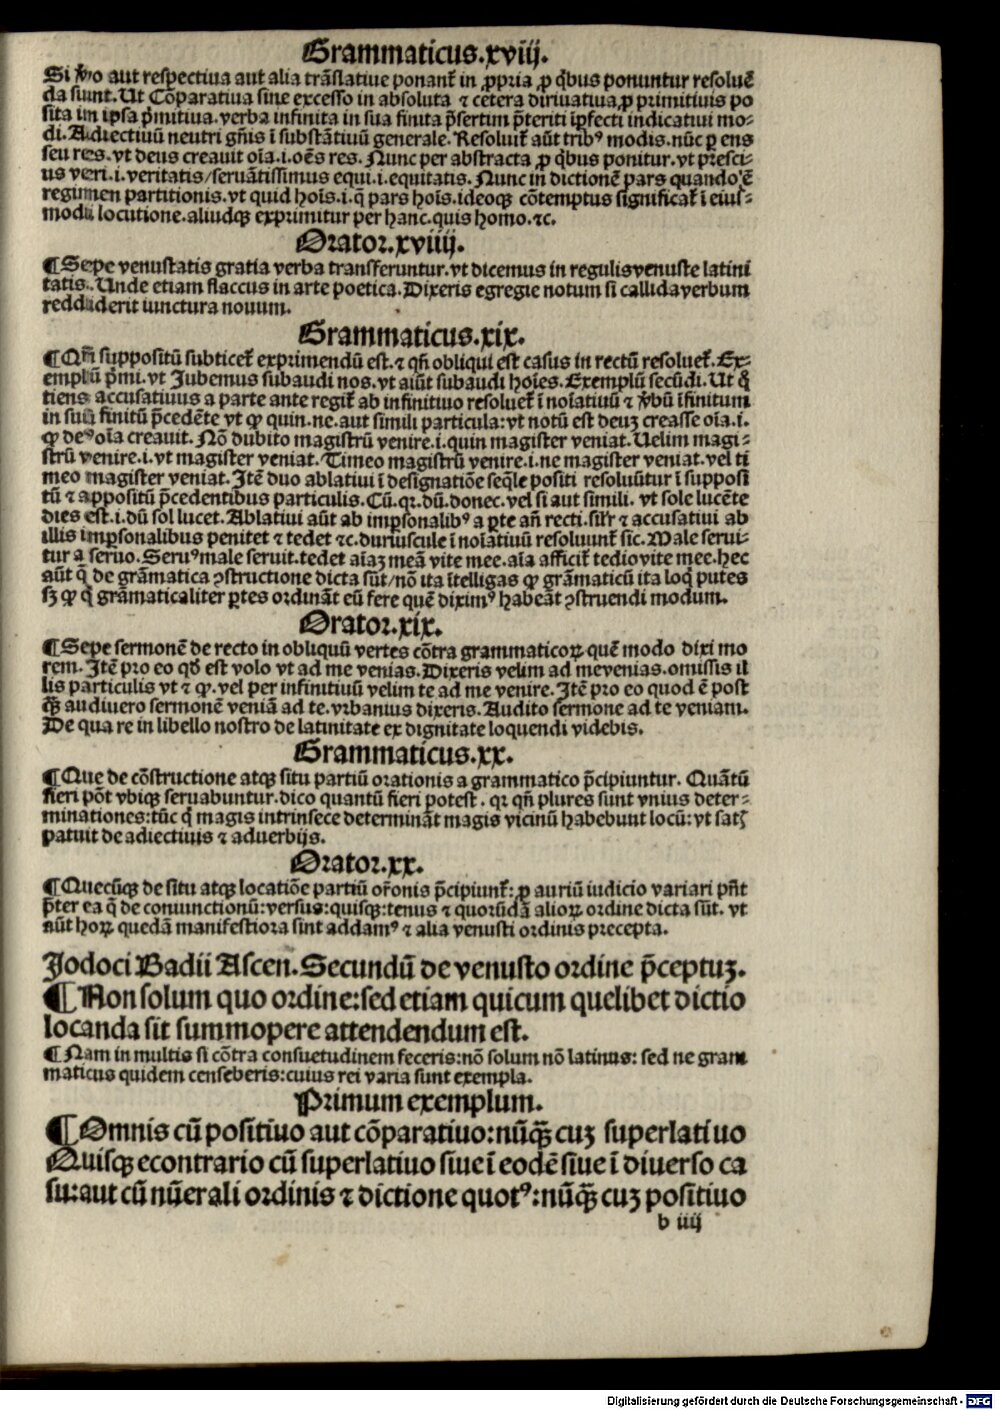 Grammaticus.xviij.
Si ꝟo aut respectiua aut alia trãslatiue ponant᷑ in ꝓpria ꝓ qͥbus ponuntur resoluē
da sunt.Ut Cõparatiua sine excesso in absoluta ⁊ cetera diriuatiua ꝓ primitiuis po
sita in ipsa pͥmitiua.verba infinita in sua finita p̃sertim p̃teriti ip̱fecti indicatiui mo-
di.Adiectiuũ neutri gñis ĩ substãtiuũ generale.Resoluit᷑ aũt tribꝰ modis.nũc ꝑ ens
seu res.vt deus creauit oĩa.i.oẽs res.Nunc per abstracta ꝓ qͥbus ponitur.vt presci-
us veri.i.veritatis/seruãtissimus equi.i.equitatis.Nunc in dictionẽ pars quando'ẽ
regimen partitionis.vt quid hoĩs.i.q̃ pars hoĩs.ideoqꝫ cõtemptus significat᷑ ĩ eius-
modi locutione.aliudqꝫ exprimitur per hanc.quis homo.⁊c.
Orator.xviiij.
¶Sepe venustatis gratia verba transferuntur.vt dicemus in regulis venuste latini
tatis.Unde etiam flaccus in arte poetica.Dixeris egregie notum si callida verbum
reddiderit iunctura nouum.
Grammaticus.xix.
¶Qñ suppositũ subticet᷑ exprimendũ est.⁊ qñ obliqui est casus in rectũ resoluet᷑.Ex-
emplũ pͥmi.vt Jubemus subaudi nos.vt aiũt subaudi hoĩes.Exemplũ secũdi.Ut qͦ
tiens accusatiuus a parte ante regit᷑ ab infinitiuo resoluet᷑ ĩ noĩatiuũ ⁊ ꝟbũ ĩfinitum
in suũ finitũ p̃cedẽte vt ꝙ quin.ne.aut simili particula:vt notũ est deuꝫ creasse oĩa.i.
ꝙ deꝰ oĩa creauit.Nõ dubito magistrũ venire.i.quin magister veniat.Uelim magi-
strũ venire.i.vt magister veniat.Timeo magistrũ venire.i.ne magister veniat.vel ti
meo magister veniat.Itẽ duo ablatiui ĩ designatiõe seq̃le positi resoluũtur ĩ supposi
tũ ⁊ appositũ p̃cedentibus particulis.Cũ.qꝛ.dũ.donec.vel si aut simili. vt sole lucẽte
dies est.i.dũ sol lucet.Ablatiui aũt ab imꝑsonalibꝰ a ꝑte añ recti.sil̃r ⁊ accusatiui ab
illis imꝑsonalibus penitet ⁊ tedet ⁊c.duriuscule ĩ noĩatiuũ resoluunt᷑ sic.Male serui-
tur a seruo.Seruꝰ male seruit.tedet aĩaꝫ meã vite mee.aĩa afficit᷑ tedio vite mee.hec
aũt q̃ de grãmatica ꝯstructione dicta sũt/nõ ita ĩtelligas ꝙ grãmaticũ ita loqͥ putes
sꝫ ꝙ qͥ grãmaticaliter ꝑtes ordinãt eũ fere quẽ diximꝰ habeãt ꝯstruendi modum.
Orator.xix.
¶Sepe sermonẽ de recto in obliquũ vertes cõtra grammaticoꝝ quẽ modo dixi mo
rem.Itẽ pro eo qd̃ est volo vt ad me venias.Dixeris velim ad me venias.omissis il
lis particulis vt ⁊ ꝙ.vel per infinitiuũ velim te ad me venire.Itẽ pro eo quod ẽ post
qꝫ̃ audiuero sermonẽ veniã ad te.vrbanius dixeris.Audito sermone ad te veniam.
De qua re in libello nostro de latinitate ex dignitate loquendi videbis.
Grammaticus.xx.
¶Que de cõstructione atqꝫ situ partiũ orationis a grammatico p̃cipiuntur. Quãtũ
fieri põt vbiqꝫ seruabuntur.dico quantũ fieri potest. qꝛ qñ plures sunt vnius deter-
minationes:tũc q̃ magis intrinsece determinãt magis vicinũ habebunt locũ:vt satꝭ
patuit de adiectiuis ⁊ aduerbijs.
Orator.xx.
¶Quecũqꝫ de situ atqꝫ locatiõe partiũ or̃onis p̃cipiunt᷑:ꝓ auriũ iudicio variari pñt
p̃ter ea q̃ de coniunctionũ:versus:quisqꝫ:tenus ⁊ quorũdã alioꝝ ordine dicta sũt. vt
aũt hoꝝ quedã manifestiora sint addamꝰ ⁊ alia venusti ordinis precepta.
Jodoci Badii Ascen.Secundũ de venusto ordine p̃ceptuꝫ.
¶Non solum quo ordine:sed etiam quicum quelibet dictio
locanda sit summopere attendendum est.
¶Nam in multis si cõtra consuetudinem feceris:nõ solum nõ latinus: sed ne gram
maticus quidem censeberis:cuius rei varia sunt exempla.
Primum exemplum.
¶Omnis cũ positiuo aut cõparatiuo:nũqꝫ̃ cuꝫ superlatiuo
Quisqꝫ econtrario cũ superlatiuo siue ĩ eodẽ siue ĩ diuerso ca
su:aut cũ nũerali ordinis ⁊ dictione quotꝰ:nũqꝫ̃ cuꝫ positiuo
b iiij
Digitalisierung gefördert durch die Deutsche Forschungsgemeinschaft - DFG